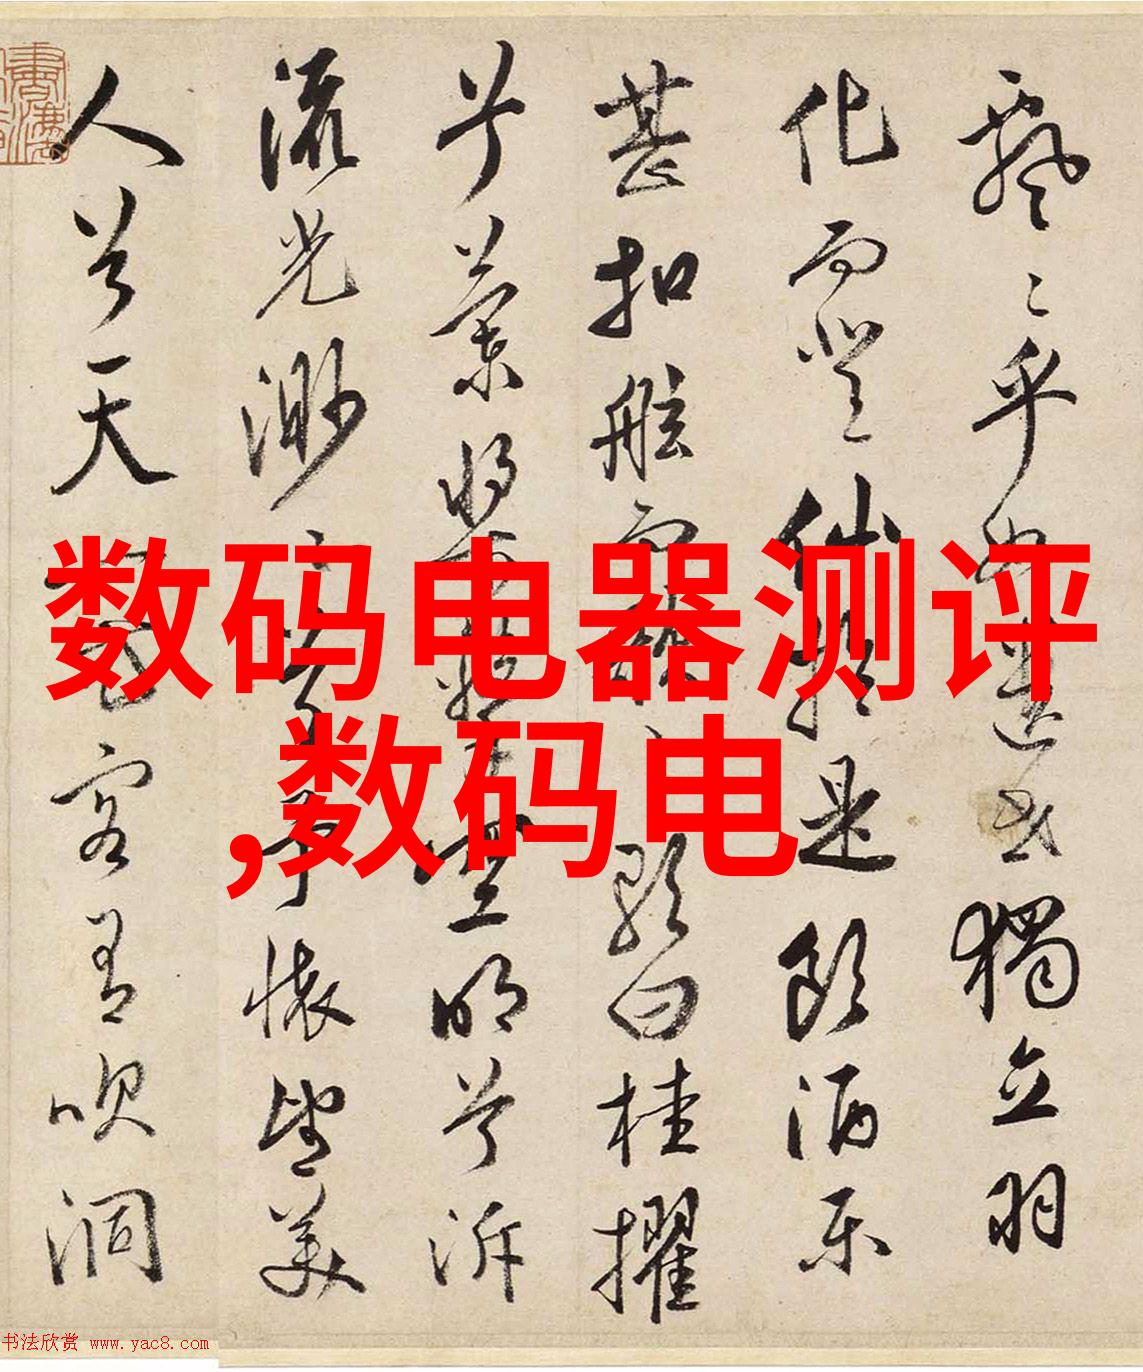 飘飘乎如遗世独立羽
化而登仙于是饮酒乐
甚扣舷而歌之歌曰桂擢
兮兰桨击空明兮泝
流光渺渺兮予怀望美
人兮天一方客有吹洞
数码电器测评
,数码电
书法欣赏 www.yac8.com